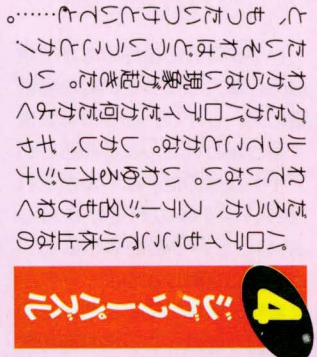 4 ジグソーパズル
パロディもここで小休止なの
だろうか、ステージ名もひねく
れていない。いわゆるオリジナ
ルってことかな。しかし、ギャ
グだかパロディだか何だかよく
わからない現象が起きた。いっ
たいそれはどういうことか!
と、もったいつけといて……。